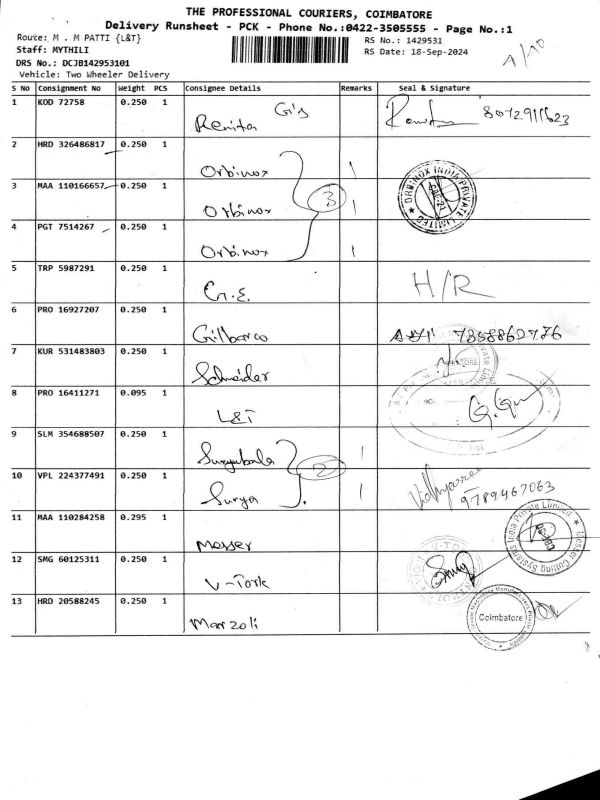 THE PROFESSIONAL COURIERS, COIMBATORE
Delivery Runsheet - PCK - Phone No.:0422-3505555 - Page No.:1
Route: M . M PATTI {L&T}
RS No.: 1429531
Staff: MYTHILI
RS Date: 18-Sep-2024
DRS No.: DCJB142953101
Vehicle: Two Wheeler Delivery
S No Consignment No Weight PCS Consignee Details Remarks Seal & Signature
1 KOD 72758 0.250 1 Renita 8072911623
2 HRD 326486817 0.250 1 Orbinox
3 MAA 110166657 0.250 1 Orbinox 3 ORBINOX INDIA PRIVATE LIMITED
4 PGT 7514267 0.250 1 Orbinox
5 TRP 5987291 0.250 1 G.E. H/R
6 PRO 16927207 0.250 1 Gilbarco 7358862776
7 KUR 531483803 0.250 1 Schneider
8 PRO 16411271 0.095 1 L&T
9 SLM 354688507 0.250 1 Suryabala
10 VPL 224377491 0.250 1 Surya 2 9789467063
11 MAA 110284258 0.295 1 Messer Messer Cutting Systems India Private Limited
12 SMG 60125311 0.250 1 V-Tork
13 HRD 20588245 0.250 1 Marzoli Coimbatore